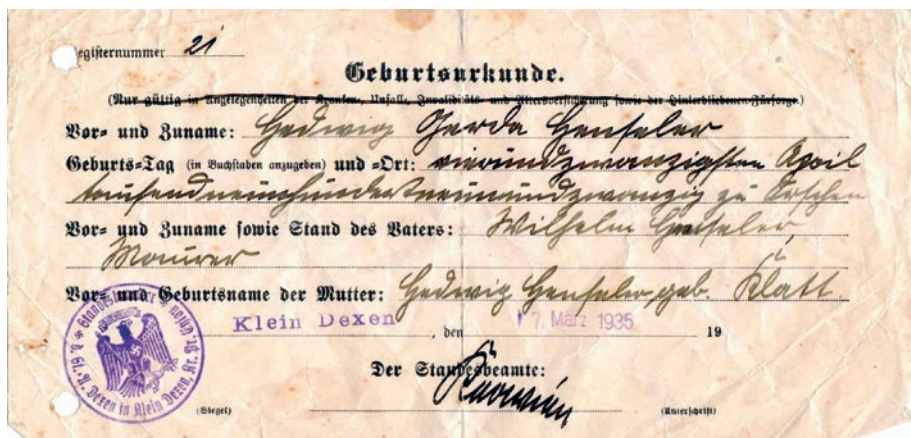 Registernummer 21
Geburtsurkunde.
(Nur gültig in Angelegenheiten der Kranken-, Unfall-, Invaliditäts- und Altersversicherung sowie der Hinterbliebenen-Fürsorge.)
Vor- und Zuname: Hedwig Gerda Henseler
Geburts-Tag (in Buchstaben anzugeben) und -Ort: vierundzwanzigsten April
tausendneunhundertneunundzwanzig zu Orschen
Vor- und Zuname sowie Stand des Vaters: Wilhelm Henseler,
Maurer
Vor- und Geburtsname der Mutter: Hedwig Henseler geb. Klatt
Klein Dexen, den 7. März 1935 19
Der Standesbeamte:
(Siegel) (Unterschrift)
Dexen in Klein Dexen, Kr. Pr.